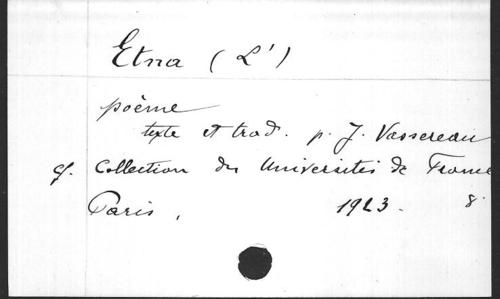 Etna (L')
poème
texte et trad. p. J. Vessereau
cf. Collection des Universités de France
Paris, 1923. 8°